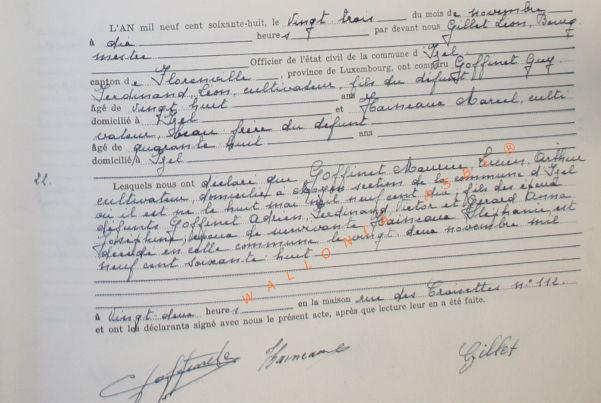 L'AN mil neuf cent soixante-huit, le vingt trois du mois de novembre
à dix heures par devant nous Gillet Léon, Bourg
mestre Officier de l'état civil de la commune d'Izel
canton de Florenville, province de Luxembourg, ont comparu Goffinet Guy
Ferdinand, Léon, cultivateur, fils du défunt
âgé de vingt huit ans
domicilié à Izel et Haineaux Marcel, culti
vateur, beau frère du défunt
âgé de quarante huit ans
domicilié à Izel
22. Lesquels nous ont déclaré que Goffinet Maurice, Lucien, Arthur
cultivateur, domicilié à section de la commune d'Izel
où il est né le huit mai mil neuf cent dix, fils des époux
défunts Goffinet Adrien, Ferdinand, Victor et Gérard Anna
Joséphine, époux de survivante Haineaux Stéphanie, est
décédé en celle commune le vingt deux novembre mil
neuf cent soixante huit
à vingt-deux heures en la maison rue des Croisettes n° 112.
et ont les déclarants signé avec nous le présent acte, après que lecture leur en a été faite.
Haineaux Gillet
WALLONIE